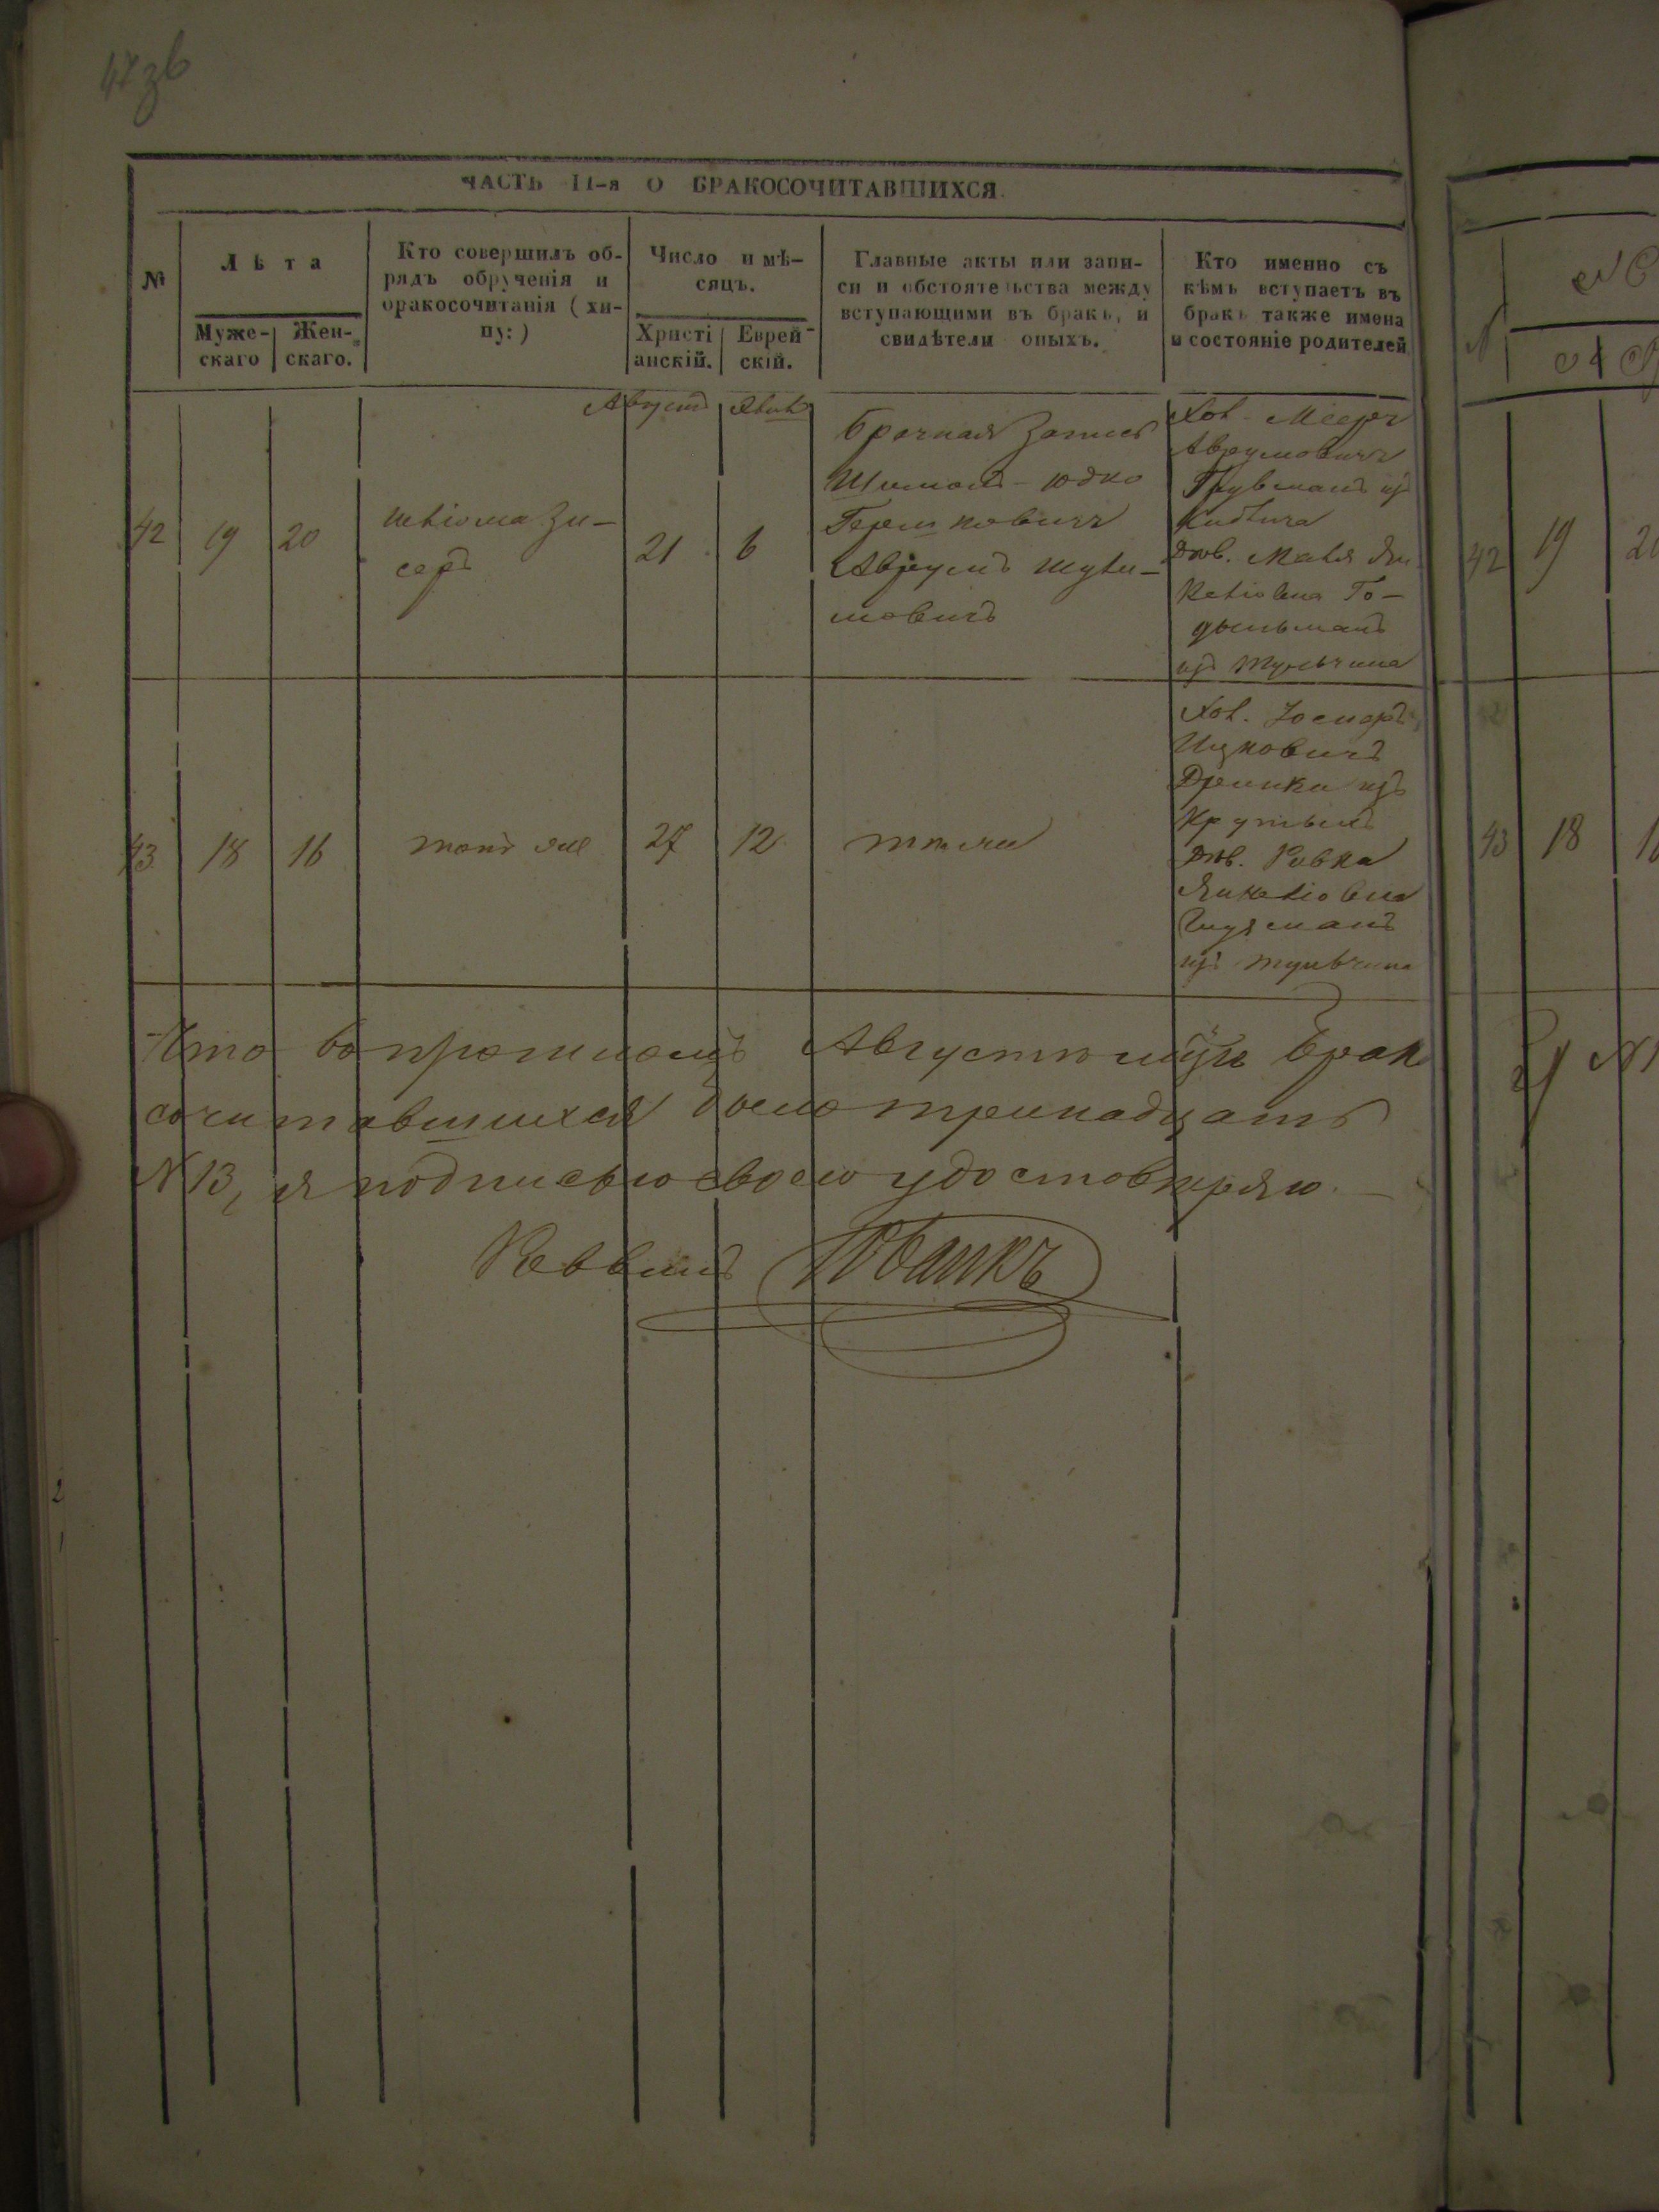 47 зв
ЧАСТЬ II-я О БРАКОСОЧИТАВШИХСЯ.
№
Лѣта
Муже-
скаго
Жен-
скаго.
Кто совершилъ об-
рядъ обрученія и
бракосочитанія (хи-
пу:)
Число и мѣ-
сяцъ.
Христі
анскій.
Еврей-
скій.
Главные акты или запи-
си и обстоятельства между
вступающими въ бракъ, и
свидѣтели оныхъ.
Кто именно съ
кѣмъ вступаетъ въ
бракъ также имена
и состояніе родителей
Августъ
42
19
20
Шліома Зи-
серъ
21
6
Брачная Запись
Шимонъ-Юдко
Гершковичъ
Аврумъ Шули-
мовичъ
Хол. Мееръ
Аврумовичъ
изъ
Дѣв. Маля Ян-
келіовна Го-
изъ Тульчина
43
18
16
тотъ же
27
12
тѣ же
Хол. Іосифъ
Ицковичъ
изъ
Крутыхъ
Дѣв. Ривка
Янкеліовна
изъ Тульчина
Что въ прошломъ Августѣ м-цѣ брако
сочитавшихся было тринадцать
N 13, я подписью своею удостовѣряю.
Раввинъ
42
19
43
18